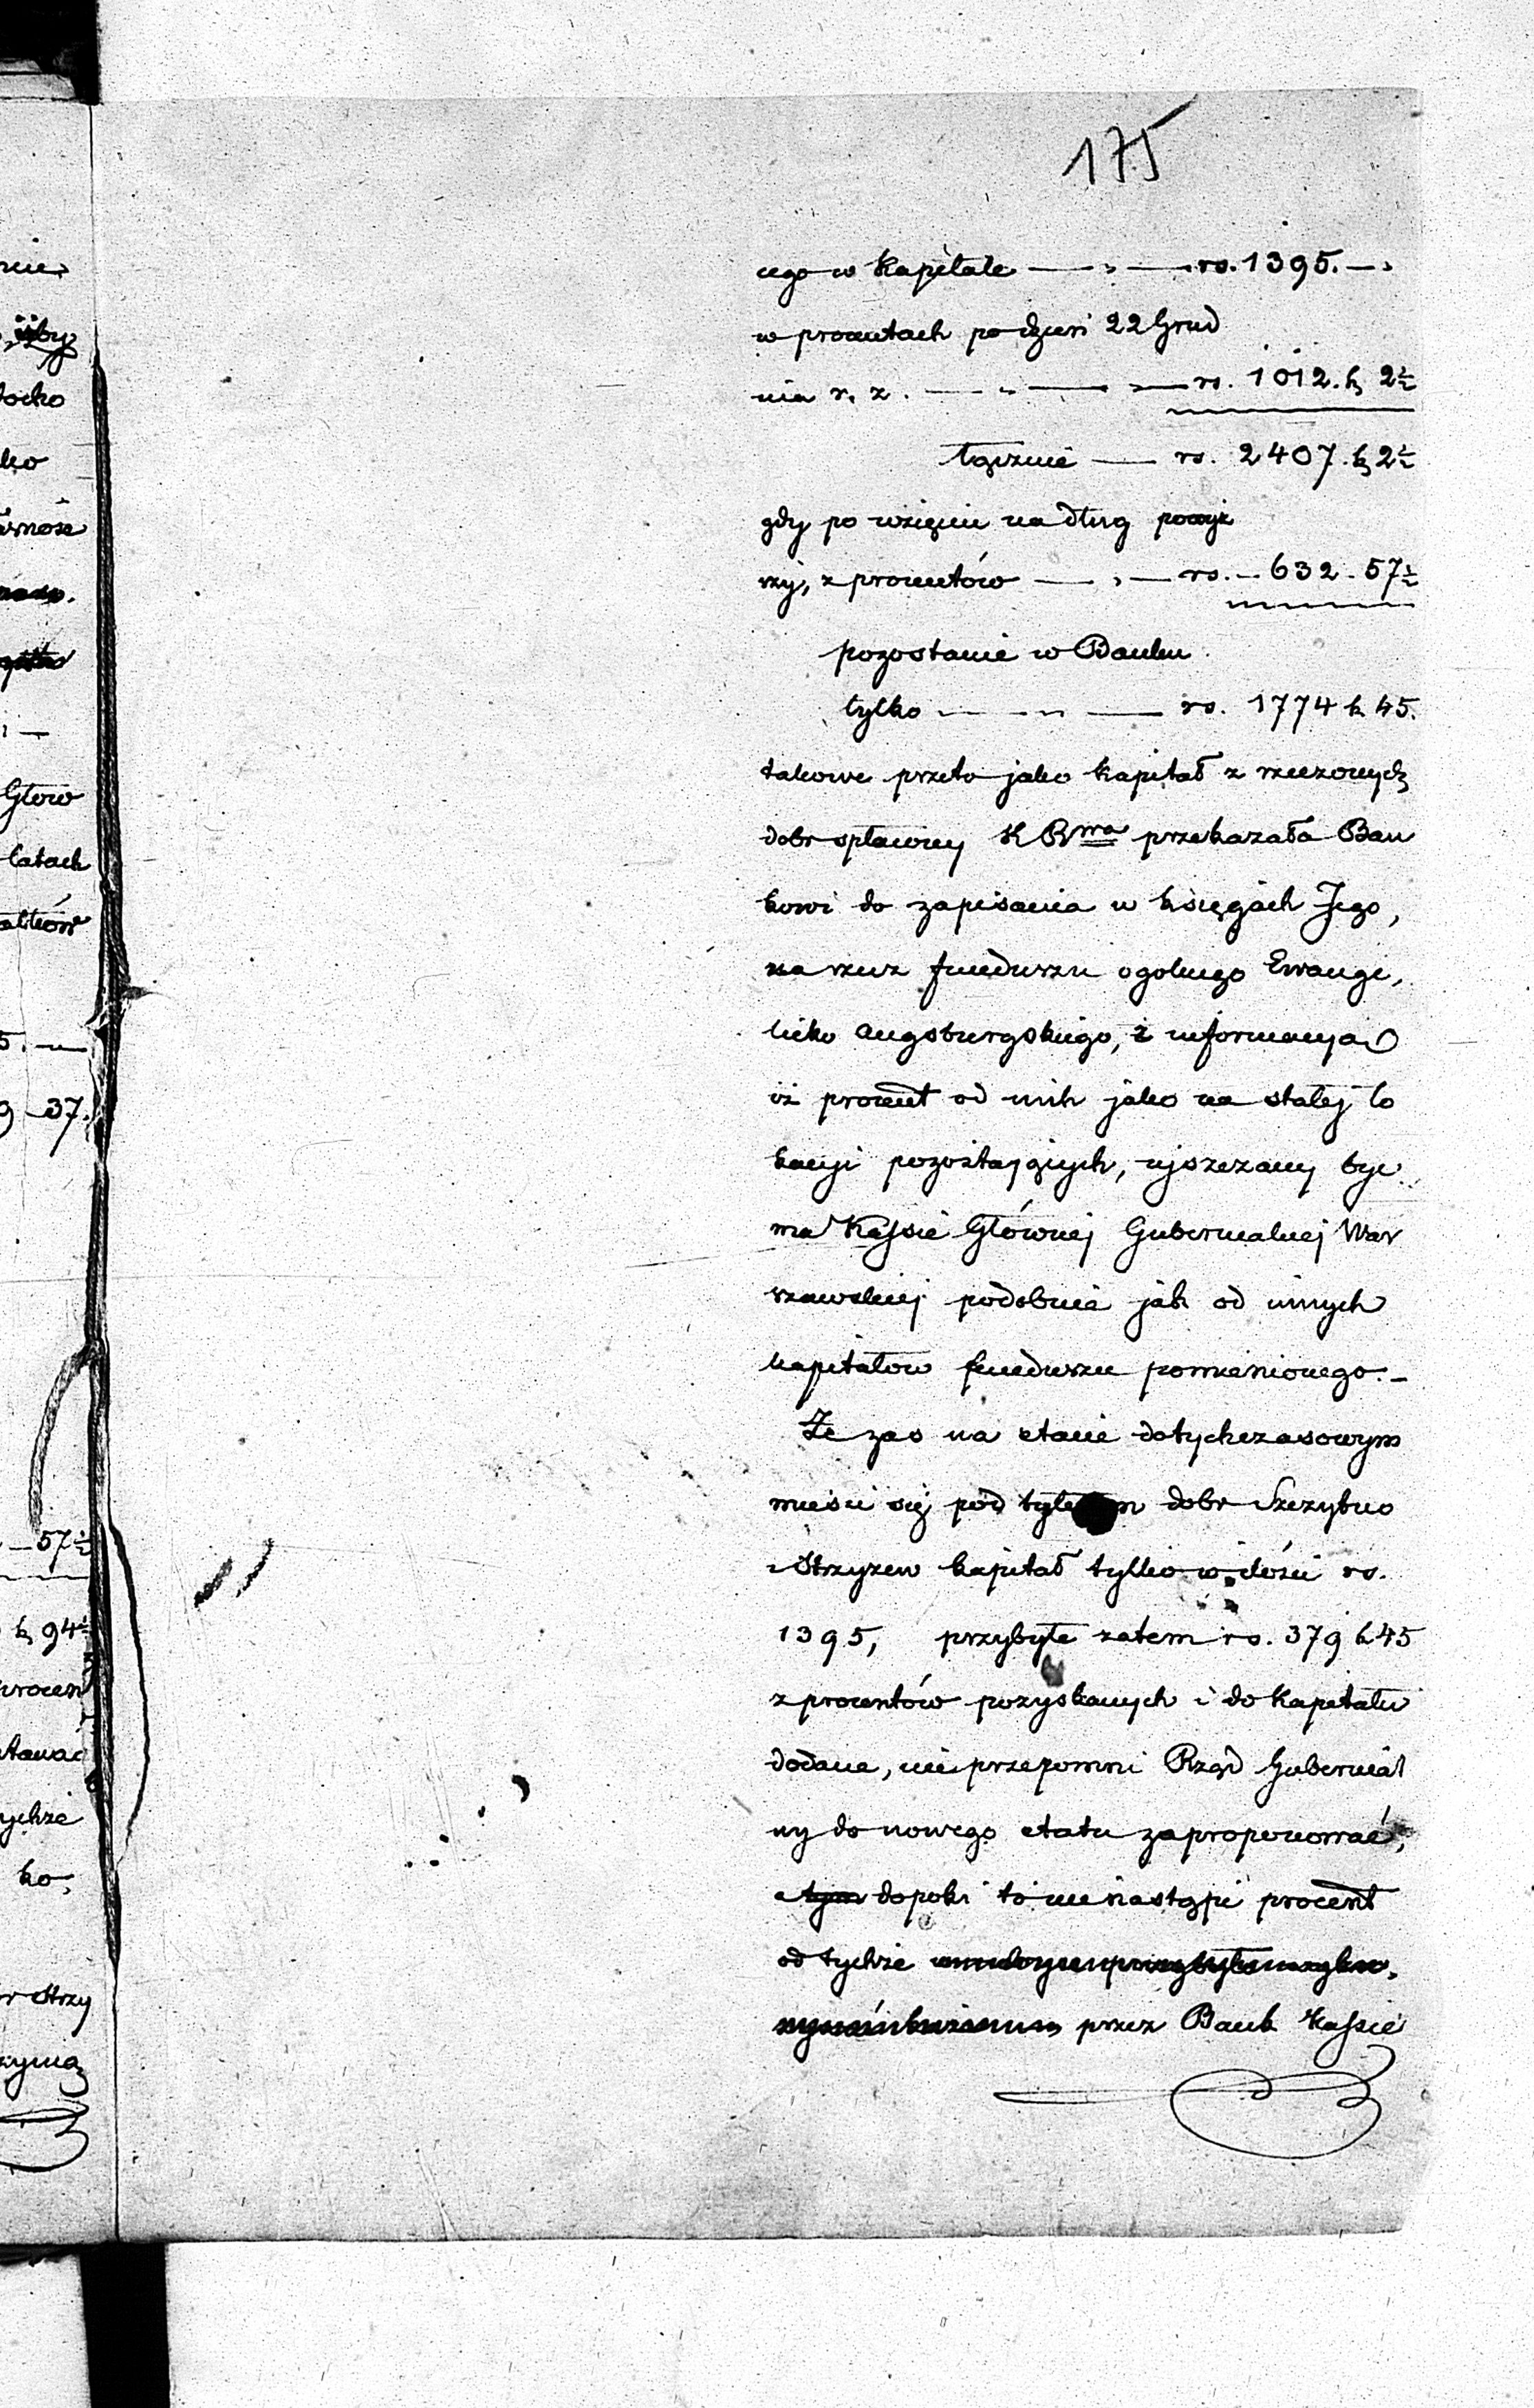 175
cego w kapitale — „ — rs. 1395. — „
w procentach po dzień 22 Grud
nia r. z. — „ — „ — rs. 1012. k 2½
łącznie — rs. 2407. k 2½
gdy po wzięciu na dług powyż
szy, z procentów — „ — rs. — 632 - 57½
pozostanie w Banku
tylko — „ — rs. 1774 k 45.
takowe przeto jako kapitał z rzeczonych
dobr spłacony K R wa przekazała Ban
kowi do zapisania w księgach Jego,
na rzecz funduszu ogolnego Ewange,
licko Augsburgskiego, z informacyą
iż procent od nich jako na stałej lo
kacyi pozostających, ujszczany byc
ma Kassie Głównej Gubernialnej War
szawskiej podobnie jak od innych
kapitałow funduszu pomienionego. —
Że zas na etacie dotychczasowym
miesci się pod tytułem dobr Szczytno
i Strzyzew kapitał tylko w ilości rs.
1395, przybyłe zatem rs. 379 k 45
z procentów pozyskanych i do kapitału
dodane, nie przepomni Rząd Gubernial
ny do nowego etatu zaproponować,
a tym dopoki to nie nastąpi procent
od tychże
przez Bank Kassie
nie
iżby
ko
Głow
latach
5. —
9 — 37.
— 57½
k 94½
procen
ychże
ko,
r Strzy